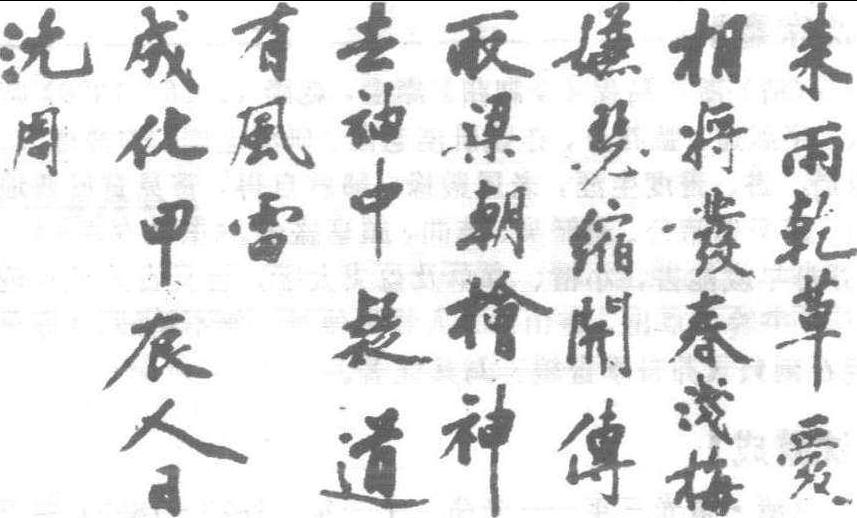 来雨乾草愛
相將發春淺梅
嫌瑟縮開傳
取梁朝檜神
去袖中疑道
有風雷
成化甲辰人日
沈周